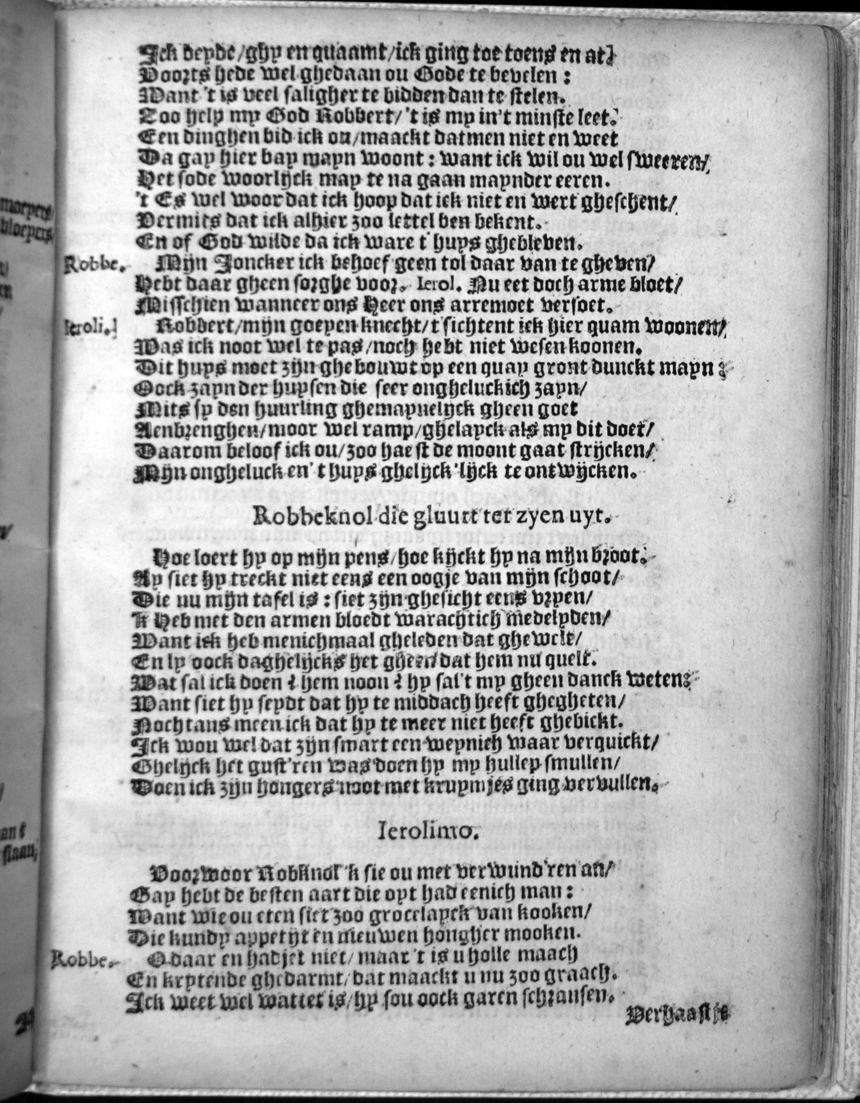 Ick beyde/ghy en quaamt/ick ging toe toens en at/
Voorts hede wel ghedaan ou Gode te bevelen:
Want 't is veel saligher te bidden dan te stelen.
Zoo help my God Robbert/'t is my in't minste leet.
Een dinghen bid ick ou/maackt datmen niet en weet
Da gay hier bay mayn woont: want ick wil ou wel sweeren/
Het sode woorlijck may te na gaan maynder eeren.
't Es wel woor dat ick hoop dat ick niet en wert gheschent/
Dermits dat ick alhier zoo lettel ben bekent.
En of God wilde da ick ware t'huys ghebleven.
Robbe. Mijn Joncker ick behoef geen tol daar van te gheven/
Hebt daar gheen sorghe voor. Ierol. Nu eet doch arme bloet/
Misschien wanneer ons Heer ons arremoet versoet.
Ieroli. Robbert/mijn goeyen knecht/t'sichtent ick hier quam woonen/
Was ick noot wel te pas/noch hebt niet wesen koonen.
Dit huys moet zijn ghebouwt op een quay gront dunckt mayn:
Oock zayn der huysen die seer ongheluckich zayn/
Mits sy den huurling ghemaynelyck gheen goet
Aenbrenghen/moor wel ramp/ghelayck als my dit doet/
Daarom beloof ick ou/zoo haest de moont gaat strijcken/
Mijn ongheluck en't huys ghelijck'lijck te ontwijcken.
Robbeknol die gluurt ter zyen uyt.
Hoe loert hy op mijn pens/hoe kijckt hy na mijn broot.
Ay siet hy treckt niet eens een oogje van mijn schoot/
Die nu mijn tafel is: siet zijn ghesicht eens vryen/
'k Heb met den armen bloedt warachtich medelyden/
Want ick heb menichmaal gheleden dat ghewelt/
En ly oock daghelijcks het gheen dat hem nu quelt.
Wat sal ick doen? hem noon? hy sal't my gheen danck weten:
Want siet hy seydt dat hy te middach heeft ghegheten/
Nochtans meen ick dat hy te meer niet heeft ghebickt.
Ick wou wel dat zijn smart een weynich waar verquickt/
Ghelijck het gust'ren was doen hy my hulley smullen/
Doen ick zijn hongers noot met kruymjes ging vervullen.
Ierolimo.
Voorwoor Robknol 'k sie ou met verwund'ren an/
Gay hebt de besten aart die oyt had eenich man:
Want wie ou eten siet zoo grocelayck van kooken/
Die kundy appetijt en nieuwen hongher mooken.
Robbe. O daar en hadjet niet/maar 't is u holle maach
En krytende ghedarmt/dat maackt u nu zoo graach.
Ick weet wel wattet is/hy sou oock garen schransen.
Verhaast